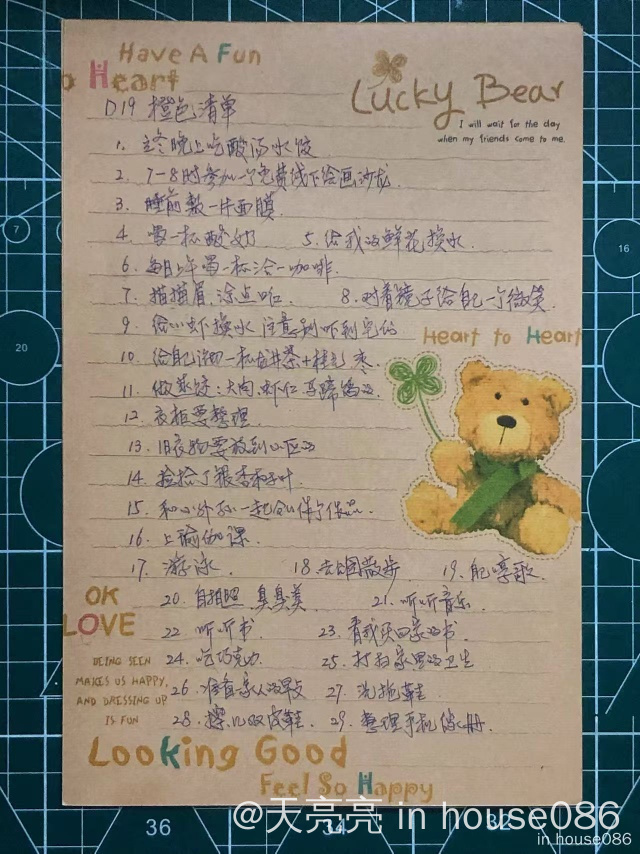 Have A Fun
Heart
Lucky Bear
I will wait for the day
when my friends come to me.
D19 橙色清单
1. 冬晚上吃酸汤水饺
2. 7-8时参加一个免费线下绘画沙龙.
3. 睡前敷一片面膜.
4. 喝一杯酸奶 5. 给我的鲜花换水.
6. 每日上午喝一杯冷咖啡.
7. 描描眉、涂点口红. 8. 对着镜子给自己一个微笑.
9. 给小虾换水 注意别吓到它们
Heart to Heart
10. 给自己沏一杯 茶+桂花 枣.
11. 做蒸饺:大肉、虾仁 马蹄
12. 衣柜要整理.
13. 旧衣物要放到小区
14. 捡捡了银杏和子叶
15. 和小 一起
16. 上瑜伽课.
17. 游泳. 18. 去公园散步 19. 哼歌.
OK
LOVE
20. 自拍照 臭臭美 21. 听听音乐.
22 听听书. 23. 看我 的书.
BEING SEEN
MAKES US HAPPY,
AND DRESSING UP
IS FUN
24. 吃巧克力. 25. 打扫家里的卫生
26. 准备家人的早 27. 洗拖鞋.
28. 擦几双皮鞋. 29. 整理手机 册.
Looking Good
Feel So Happy
7
20
16
36
34
32
@天亮亮 in house086
in house086